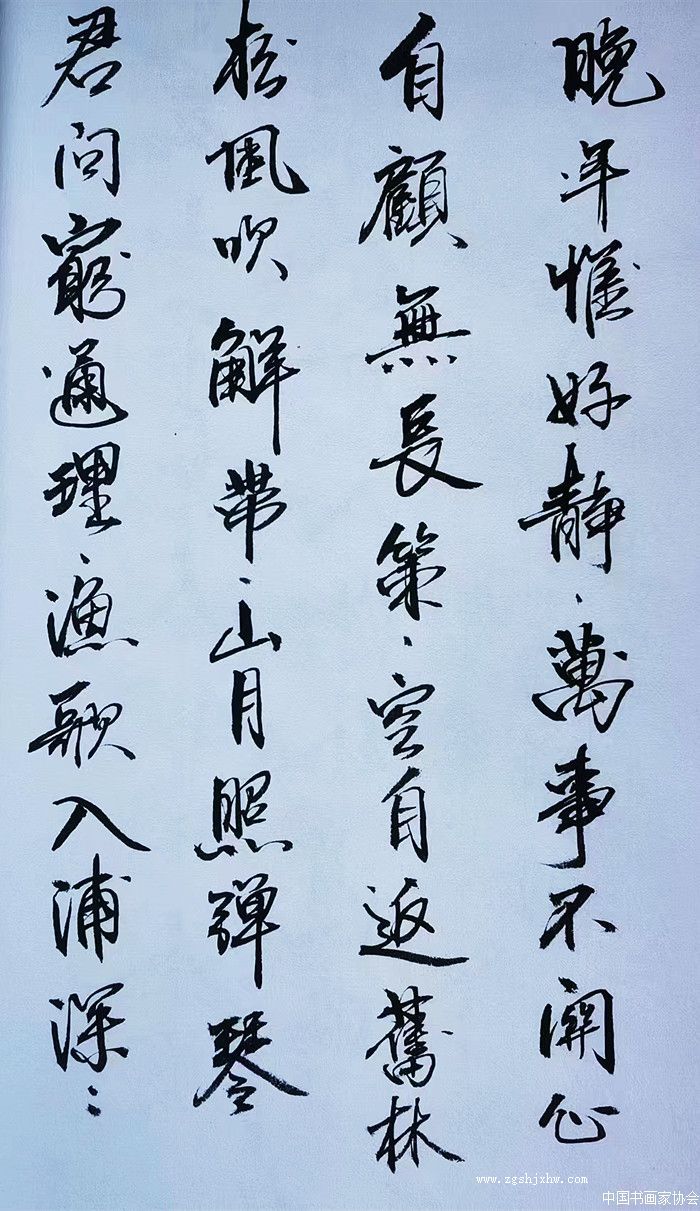 晚年惟好静、萬事不關心
自顧無長策、空自返舊林
松風吹解带、山月照彈琴
君问窮通理、漁歌入浦深：
www.zgshjxhw.com
中国书画家协会